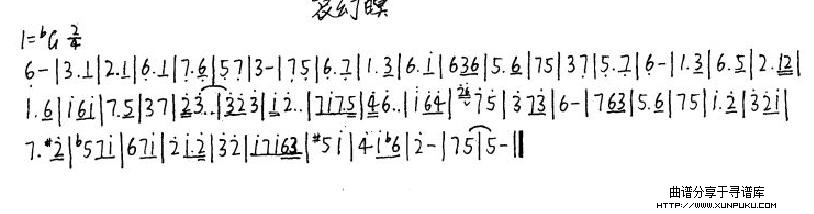 哀幻暝
1=ᵇG 2/4
6-|3.1|2.1|6.1|7.6|57|3-|75|6.7|1.3|6.i|636|5.6|75|37|5.7|6-|1.3|6.5|2.12|
1.6|i6i|7.5|37|23..|323|12..|7i75|46..|i64|²⁴75|373|6-|763|5.6|75|1.2|32i|
7.#2|ᵇ57i|67i|2i.2|32|i7i63|#5i|4iᵇ6|2-|75|5-‖
曲谱分享于寻谱库
HTTP://WWW.XUNPUKU.COM